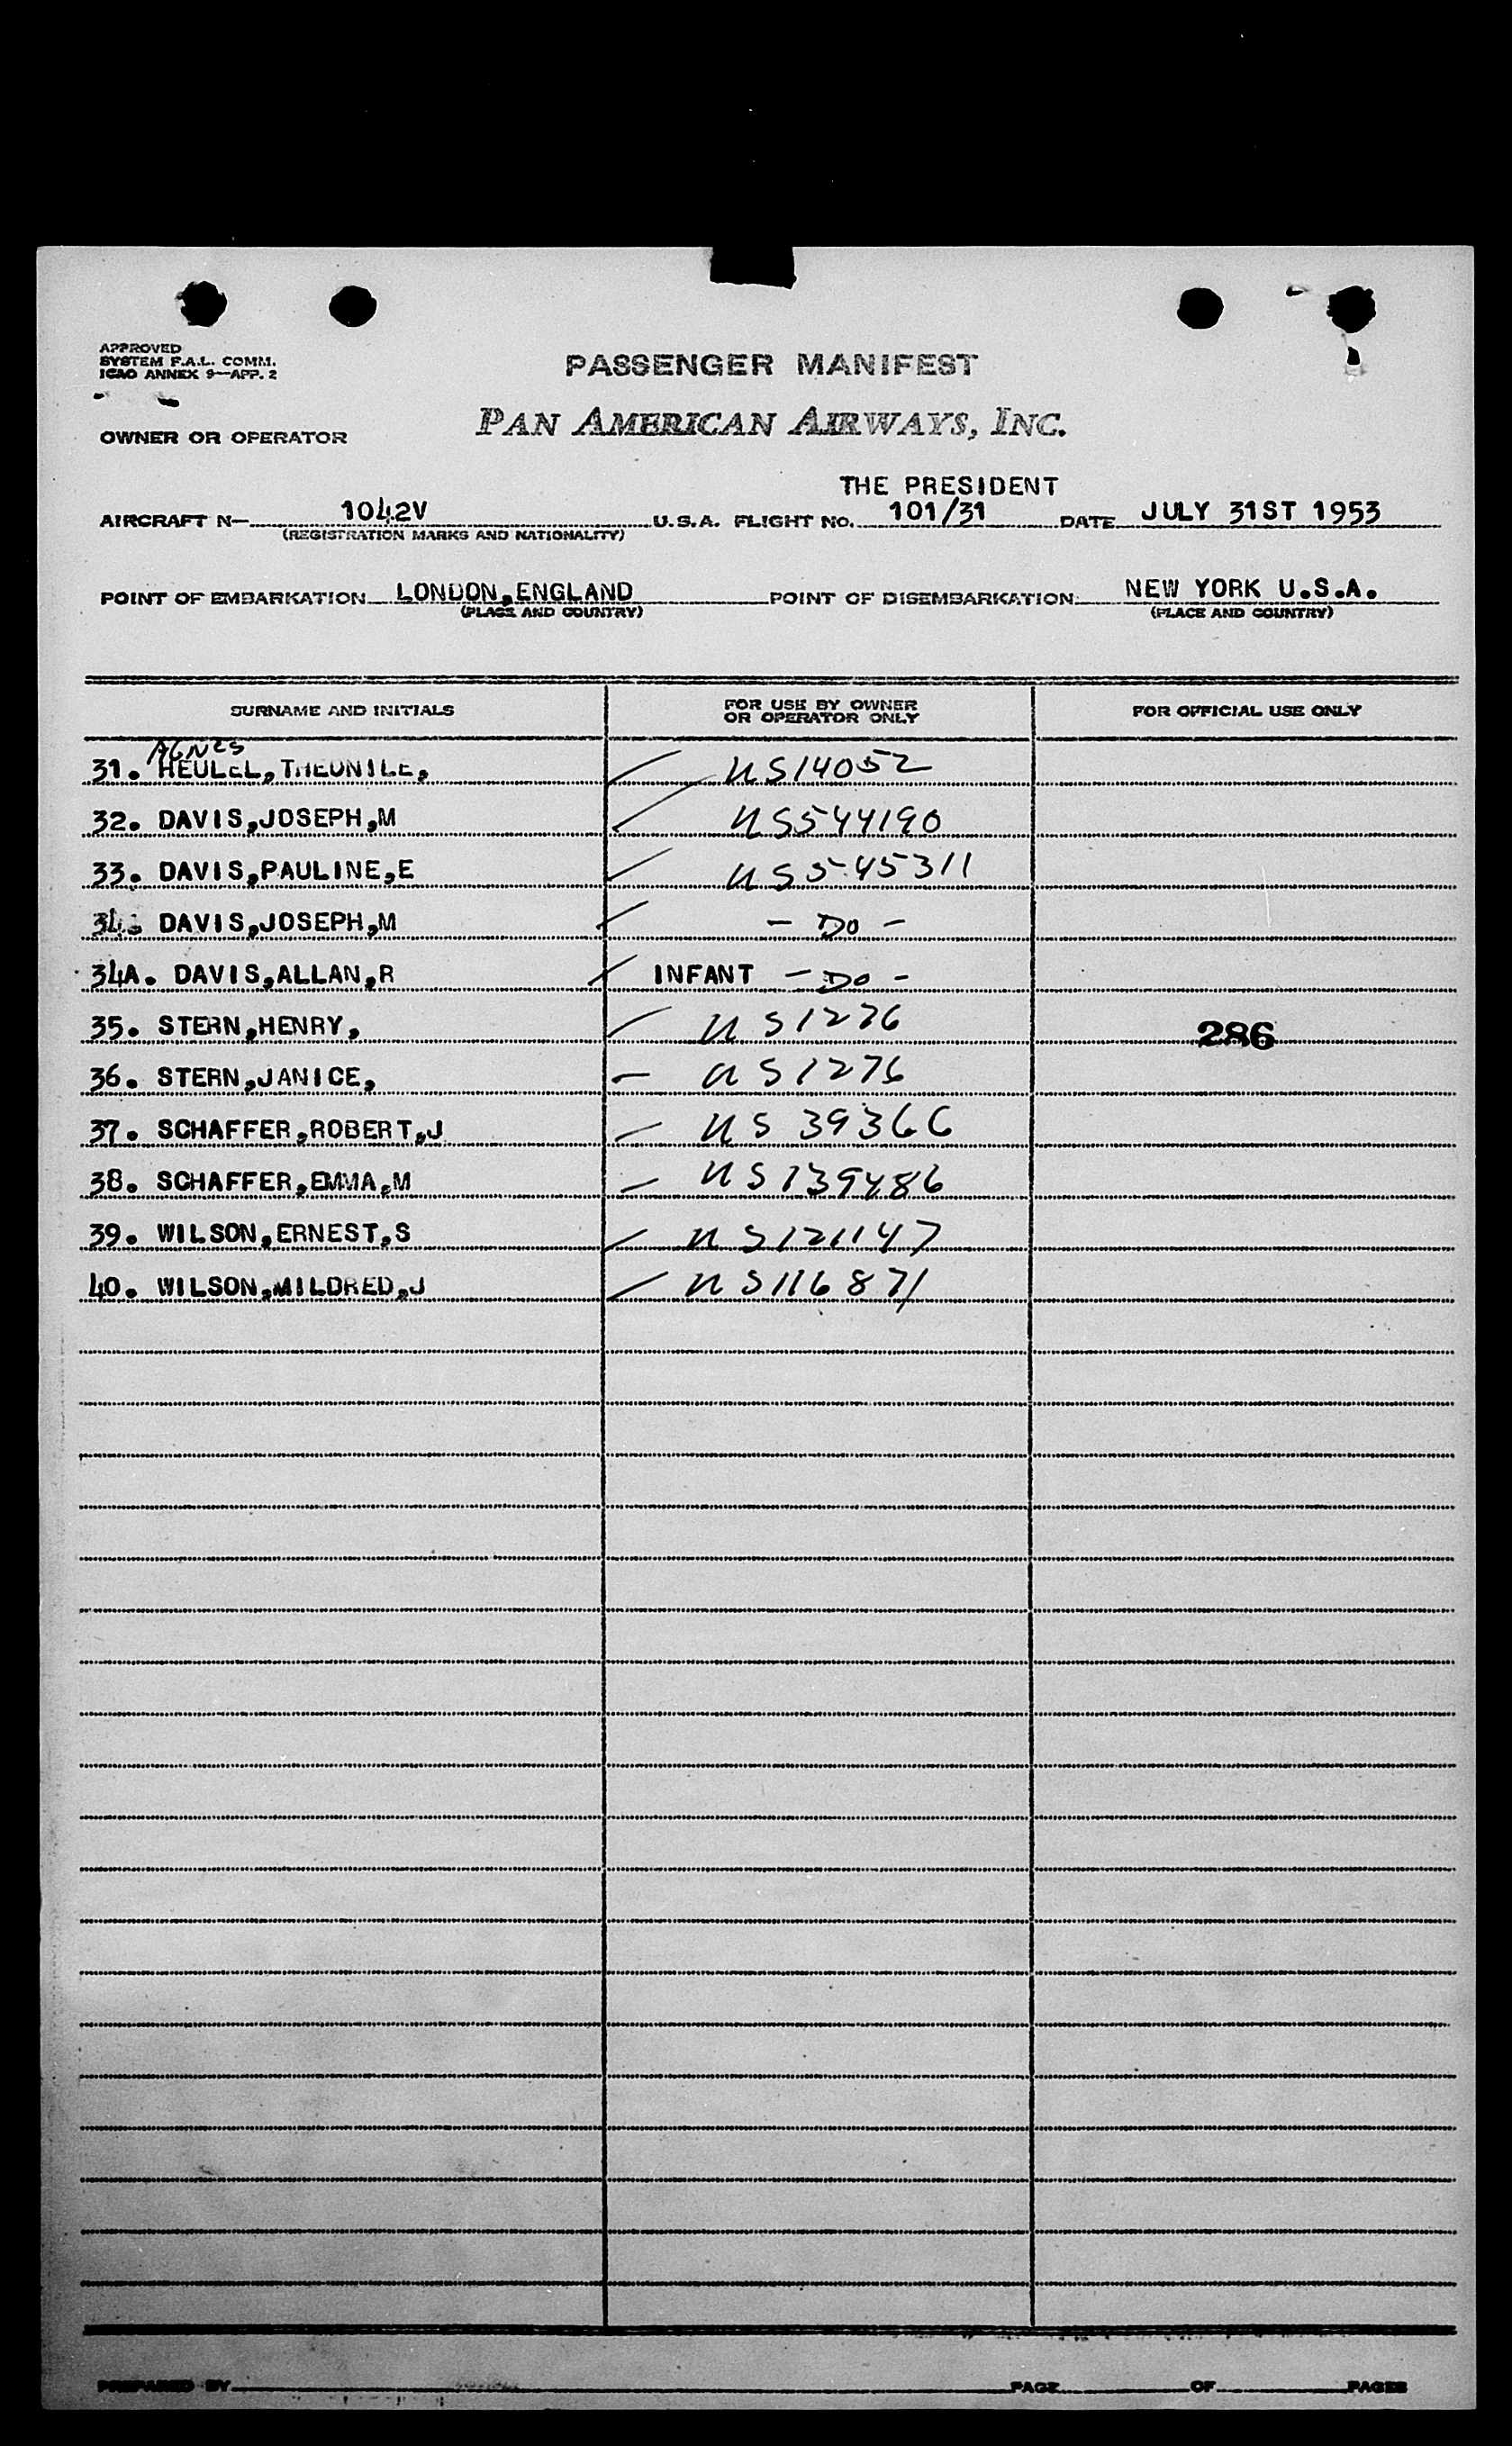 APPROVED
SYSTEM F.A.L. COMM.
ICAO ANNEX 9—APP. 2
PASSENGER MANIFEST
PAN AMERICAN AIRWAYS, INC.
OWNER OR OPERATOR
THE PRESIDENT
AIRCRAFT N— 1042V U.S.A. FLIGHT NO. 101/31 DATE JULY 31ST 1953
(REGISTRATION MARKS AND NATIONALITY)
POINT OF EMBARKATION LONDON,ENGLAND POINT OF DISEMBARKATION NEW YORK U.S.A.
(PLACE AND COUNTRY) (PLACE AND COUNTRY)
SURNAME AND INITIALS FOR USE BY OWNER OR OPERATOR ONLY FOR OFFICIAL USE ONLY
AGNES
31. US14052
32. DAVIS,JOSEPH,M US544190
33. DAVIS,PAULINE,E US545311
34. DAVIS,JOSEPH,M - DO -
34A. DAVIS,ALLAN,R INFANT - DO -
35. STERN,HENRY, US1276 286
36. STERN,JANICE, US1276
37. SCHAFFER,ROBERT,J US 39366
38. SCHAFFER,EMMA,M US139486
39. WILSON,ERNEST,S US121147
40. WILSON,MILDRED,J US116871
PREPARED BY PAGE OF PAGES